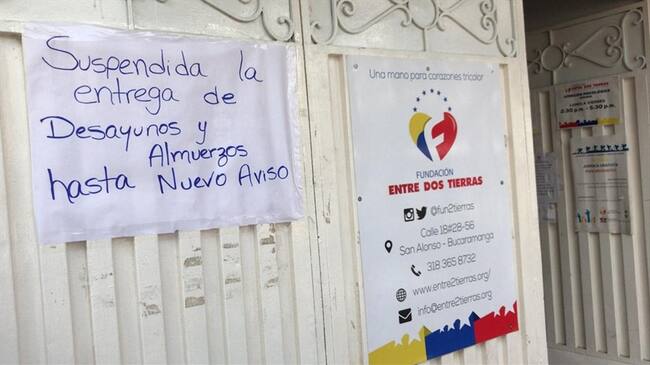 Suspendida la
entrega de
Desayunos y
Almuerzos
hasta Nuevo Aviso
Una mano para corazones tricolor
FUNDACIÓN
ENTRE DOS TIERRAS
@fun2tierras
Calle 18#28-56
San Alonso - Bucaramanga
318 365 8732
www.entre2tierras.org/
info@entre2tierras.org